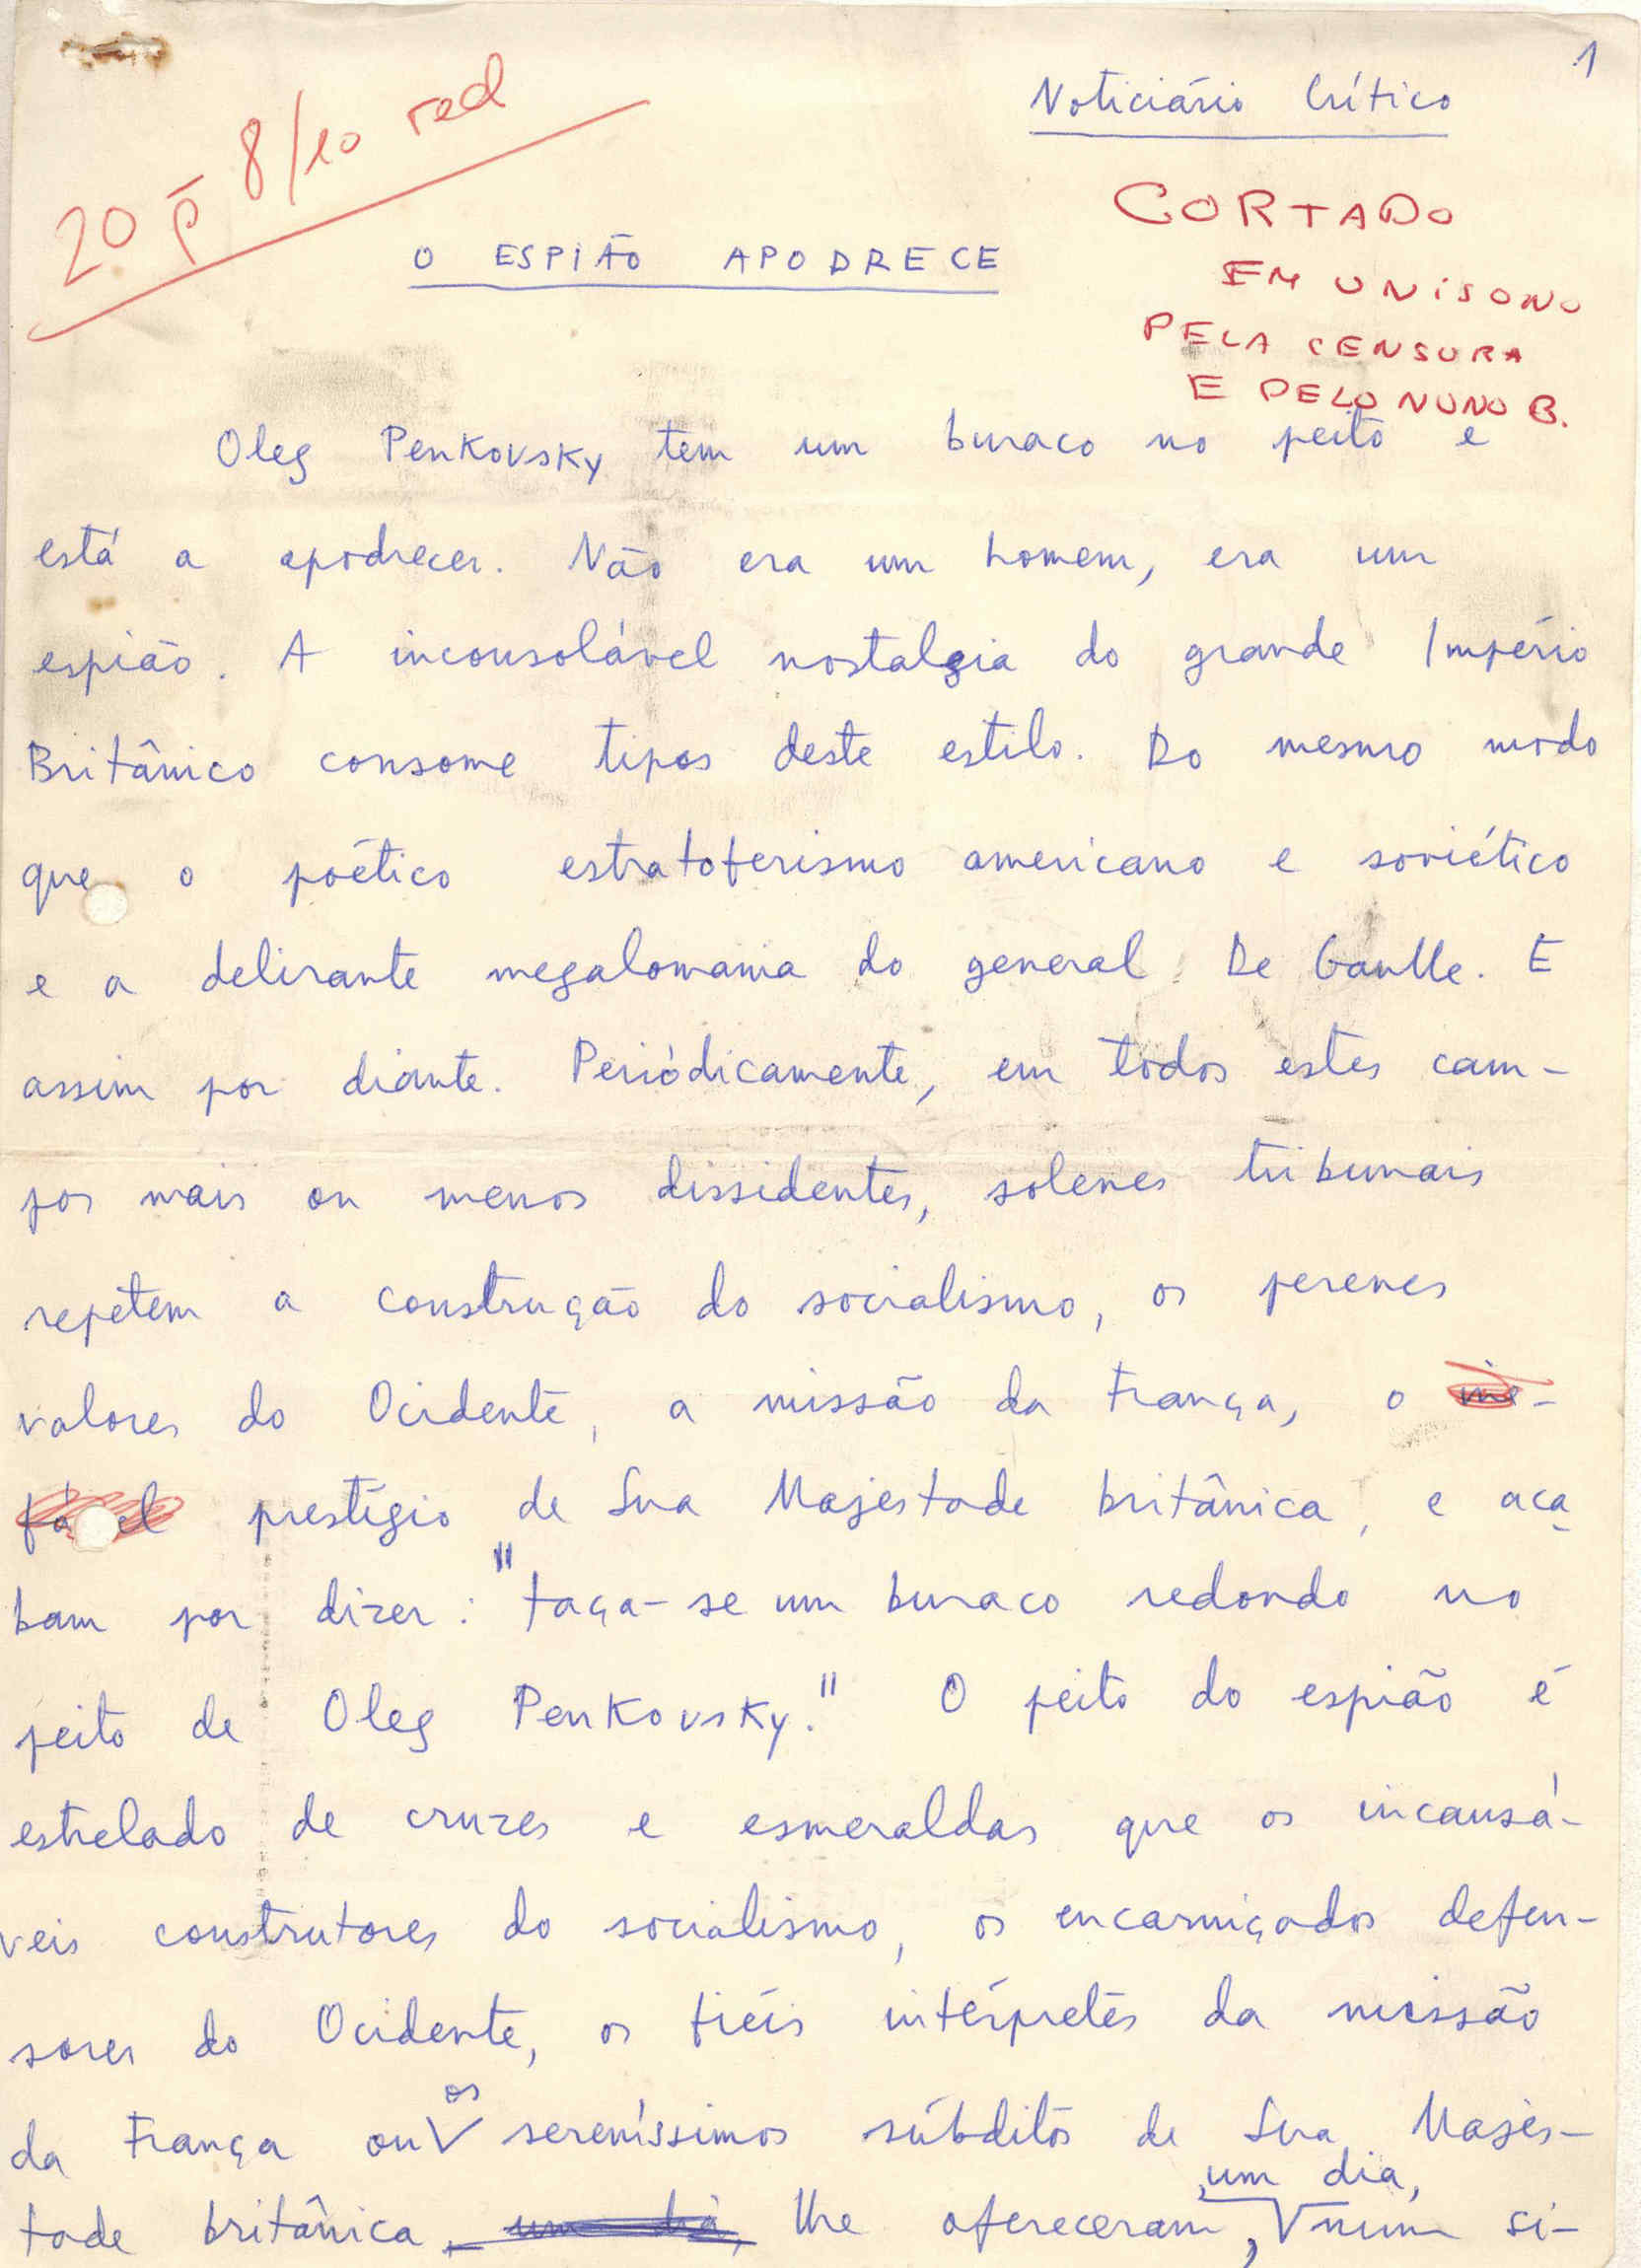 1
Noticiário Crítico
20 p 8/10 red
CORTADO
EM UNÍSONO
PELA CENSURA
E PELO NUNO B.
O ESPIÃO APODRECE
Oleg Penkovsky tem um buraco no peito e
está a apodrecer. Não era um homem, era um
espião. A inconsolável nostalgia do grande Império
Britânico consome tipos deste estilo. Do mesmo modo
que o poético estratoferismo americano e soviético
e a delirante megalomania do general De Gaulle. E
assim por diante. Periódicamente, em todos estes cam-
pos mais ou menos dissidentes, solenes tribunais
repetem a construção do socialismo, os perenes
valores do Ocidente, a missão da França, o ine-
prestígio de Sua Majestade britânica, e aca
bam por dizer: "faça-se um buraco redondo no
peito de Oleg Penkovsky." O peito do espião é
estrelado de cruzes e esmeraldas que os incansá-
veis construtores do socialismo, os encarniçados defen-
sores do Ocidente, os fiéis intérpretes da missão
da França ou os sereníssimos súbditos de Sua Majes-
tade britânica um dia, lhe ofereceram, um dia, num si-